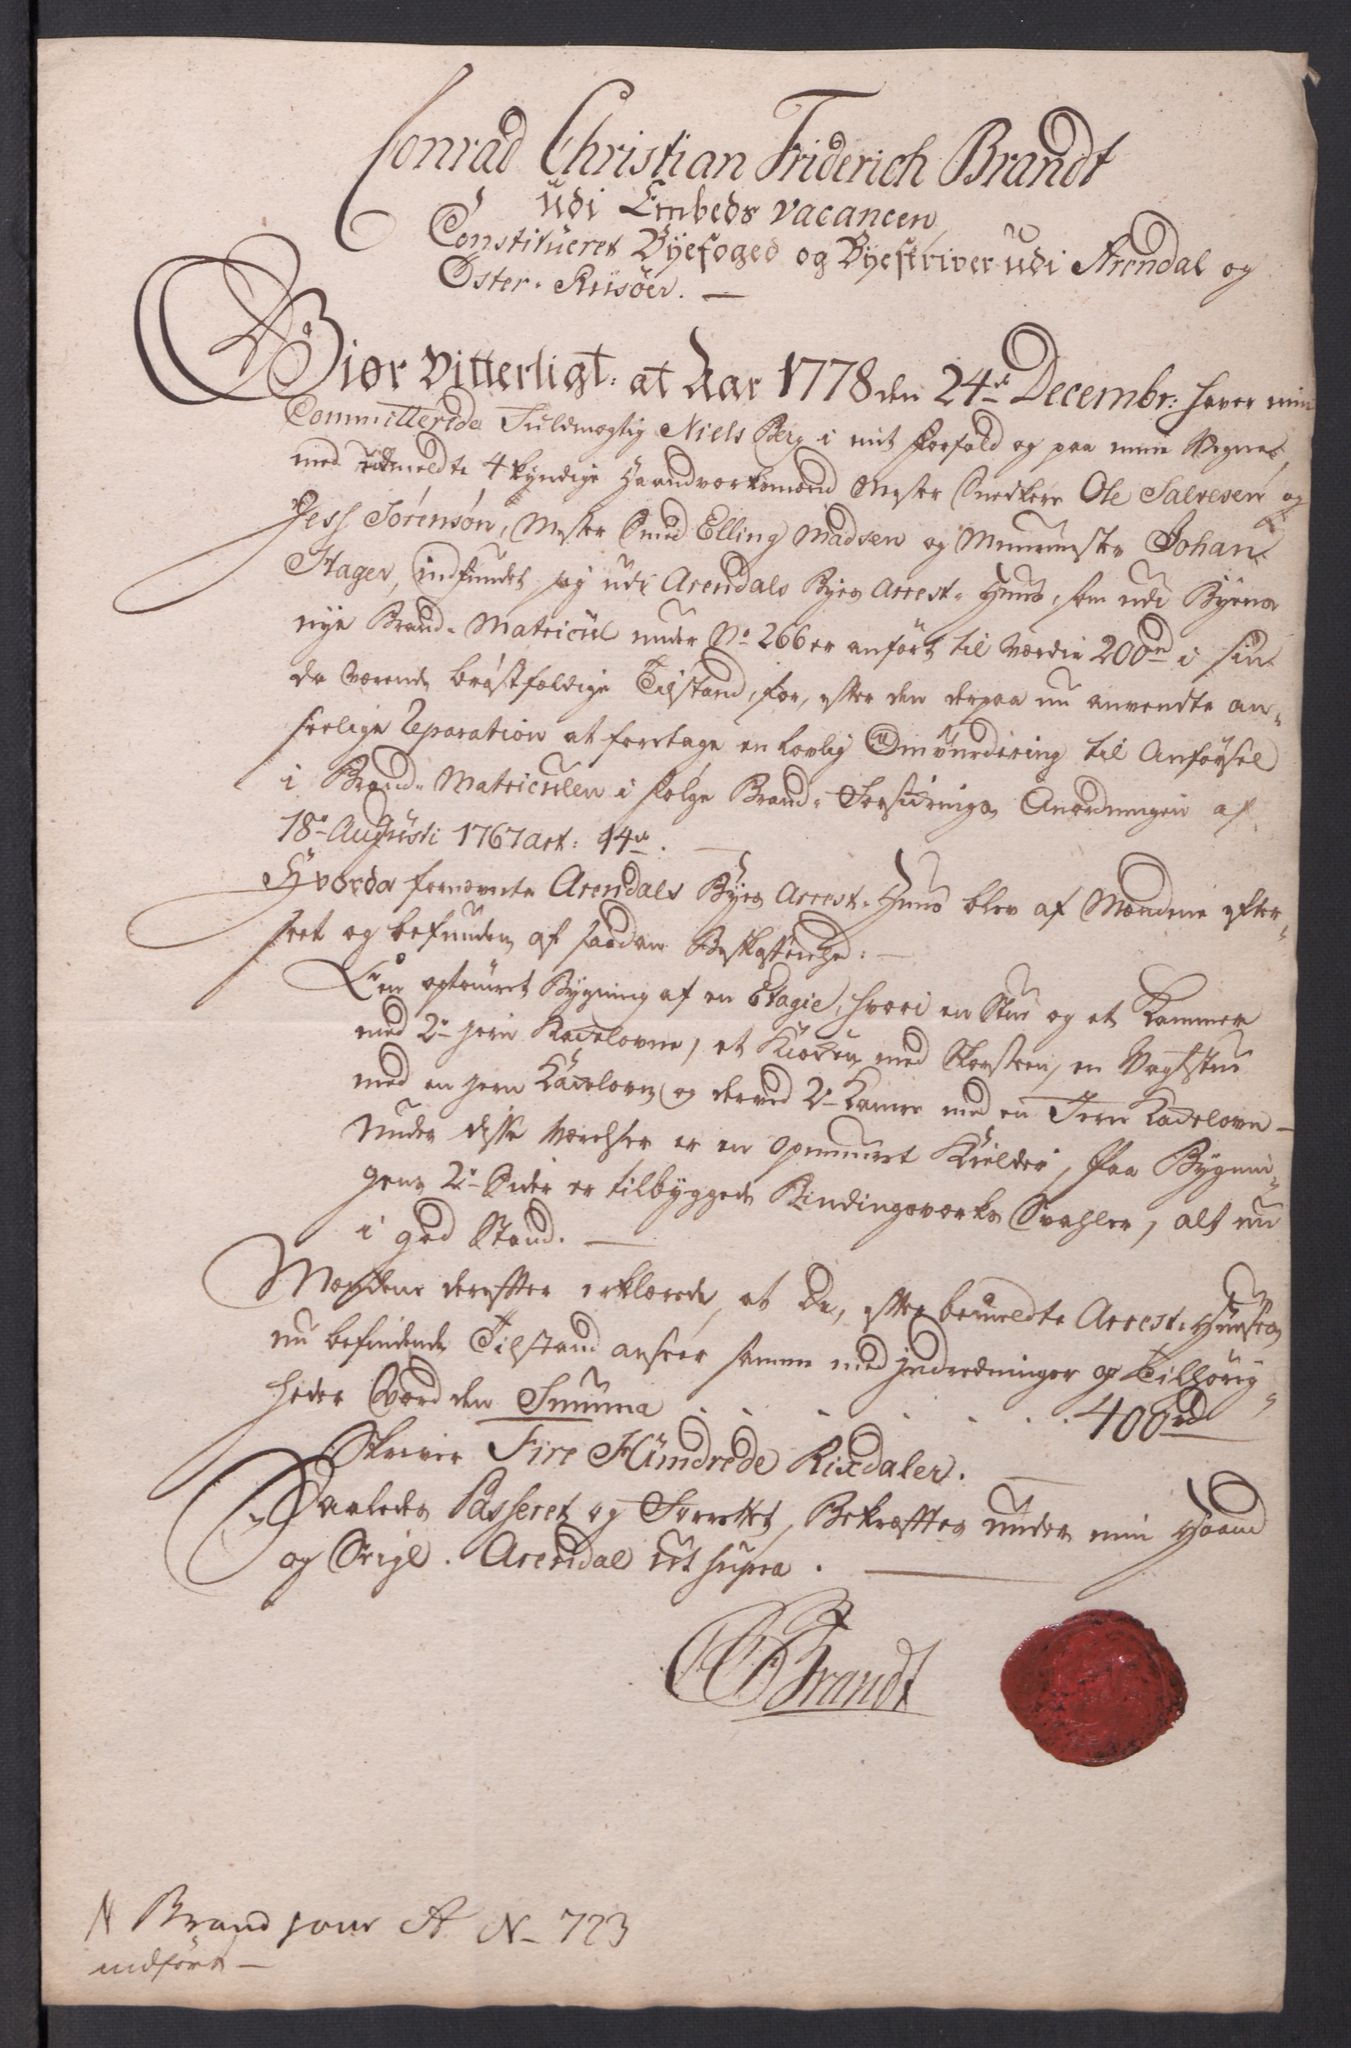 Conrad Christian Friderich Brandt
udi Embeds vacancen
Constitueret Byefoged og Byeskriver udi Arendal og
Öster-Riisöer. —
Giör Vitterligt: at Aar 1778 den 24de Decembr: haver min
Committerede Fuldmægtig Niels Berg i mit Forfald og paa mine Vegne
med udmeldte 4 kyndige Haandværksmænd Mester Snedkere Ole Salvesen og
Jess Sörensön, Mester Smed Elling Madsen og Muurmester Johan
Hager, indfundet sig udi Arendals Byes Arrest-Huus, som udi Byens
nye Brand-Matricul under No 266 er anfört til Værdie 200rd i sin
da værende bröstfældige Tilstand, for, efter den derpaa nu anvendte an-
seelige Reparation at foretage en lovlig Omvurdering til Anförsel
i Brand-Matriculen i fölge Brand-Forsikrings Anordningen af
18de Augusti 1767 art: 14de. —
Hvorda fornævnte Arendals Byes Arrest-Huus blev af Mændene efter-
seet og befunden af saadan Beskaffenhed: —
Een optömret Bygning af en Etagie, hvori en Stue og et Kammer
med 2de jern Kackelovne, et Kiöcken med Skorsteen, en Vagtstue
med en jern Kackelovn og derved 2de Kamre med en Jern Kackelovn —
Under disse Værelser er en opmuuret Kielder, Paa Bygnin-
gens 2de Sider er tilbyggede Bindingsværks Svahler, alt nu
i god Stand. —
Mændene derefter erklærede, at De, efter bemeldte Arrest-Huuses
nu befindende Tilstand anseer samme med Indredninger og Tilhörig-
heder Værd den Summa . . . . . . . 400rd
Skriver Fire Hundrede Rixdaler. —
Saaledes Passeret og Forrettet, Bekræftes under min Haand
og Seigl. Arendal ut supra. —
CCFBrandt
N Brand jour A No 723
indfört —